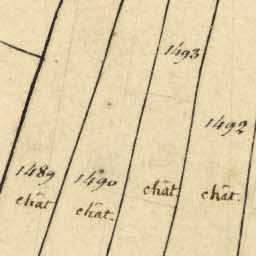 1493
1492
1489
1490
chât
chât.
chât.
chât.